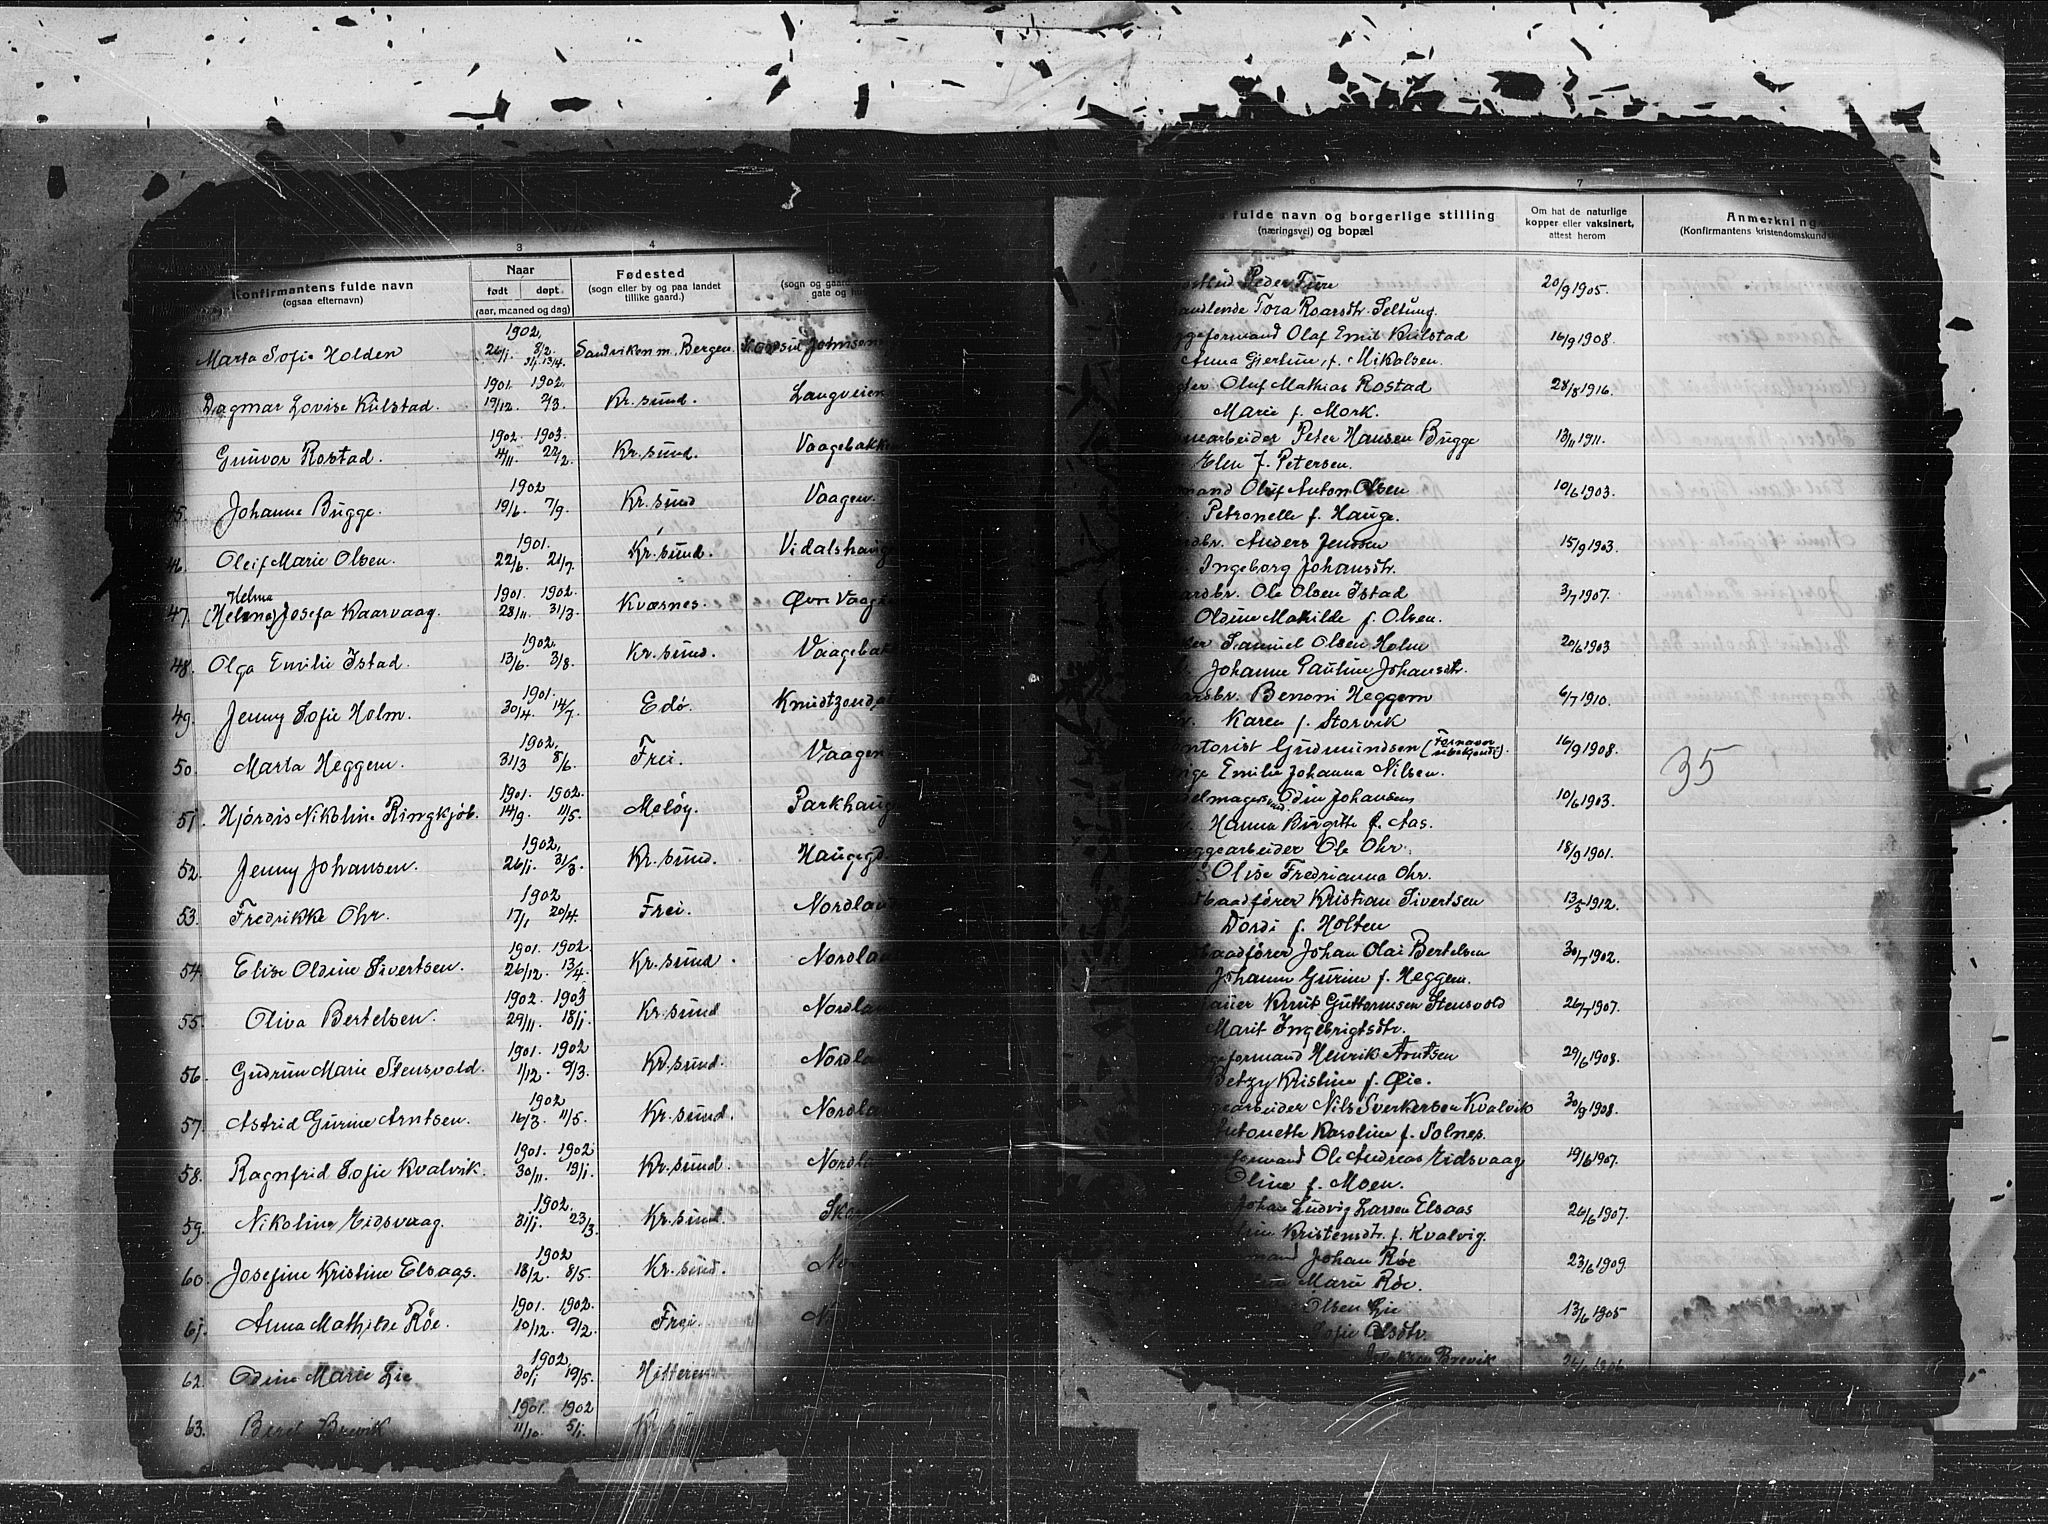 3
4
Konfirmantens fulde navn
(ogsaa efternavn)
Naar
født døpt
(aar, maaned og dag)
Fødested
(sogn eller by og paa landet
tillike gaard.)
(sogn og gaard
gate og
1902.
Marta Sofie Holden 26/1. 8/2. Sandviken m. Bergen. Johnsen
1901. 1902.
Dagmar Lovise Kulstad. 19/12. 2/3. Kr.sund. Langveien
1902. 1903.
Gunvor Rostad. 4/11 22/2. Kr.sund. Vaagebakken
1902
45. Johanna Bugge. 19/6. 7/9. Kr.sund Vaagen.
1901.
46. Oleif Marie Olsen. 22/6. 21/7. Kr.sund. Vidalshaug
Helma 1901. 1902.
47. (Helena) Josefa Kaarvaag. 28/11. 31/3. Kværnes. Øvre Vaag
1902.
48. Olga Emilie Istad. 13/6. 3/8. Kr.sund. Vaagebak
1901.
49. Jenny Sofie Holm. 30/4. 14/7. Edø. Knudtzond
1902.
50. Marta Heggem. 31/3 8/6. Frei. Vaagen
1901. 1902.
51. Hjørdis Nikoline Ringkjøb. 14/9. 11/5. Meløy. Parkhaug
1902.
52. Jenny Johansen. 26/1. 31/3. Kr.sund. Haugegd.
1902
53. Fredrikke Ohr. 17/1 20/4. Frei. Nordlan
1901. 1902.
54. Elise Oldine Sivertsen. 26/12. 13/4. Kr.sund. Nordlan
1902. 1903
55. Oliva Bertelsen. 29/11. 18/1. Kr.sund Nordlan
1901. 1902
56. Gudrun Marie Stensvold. 1/12. 9/3. Kr.sund. Nordla
1902
57. Astrid Gurine Arntsen. 16/3. 11/5. Kr.sund. Nordla
1901. 1902
58. Ragnfrid Sofie Kvalvik. 30/11. 19/1. Kr.sund. Nordl
1902.
59. Nikoline Eidsvaag. 31/1. 23/3. Kr.sund. Sko
1902
60. Josefine Kristine Elsaas. 18/2. 8/5. Kr.sund. No
1901. 1902.
61. Anna Mathilde Röe. 10/12. 9/2. Frei. N
1902.
62. Odine Marie Lie 30/1 19/5. Hitteren
1901. 1902
63. Beret Brevik 11/10. 5/1. Kr.sun
6
7
fulde navn og borgerlige stilling
(næringsvei) og bopæl
Om hat de naturlige
kopper eller vaksinert,
attest herom
Anmerkning
(Konfirmantens kristendomskundsk
Peder Fure 20/9 1905.
handlende Tora Roarsdtr. Seltung.
ggeformand Olaf Emil Kulstad 16/9 1908.
Anna Gjertine f. Mikalsen.
Oluf Mathias Rostad 28/8 1916.
Marie f. Mork.
arbeider Peter Hansen Bugge 13/11 1911.
Elen f. Petersen.
mand Oluf Anton Olsen 10/6 1903.
Petronelle f. Hauge.
rdbr. Anders Jenssen 15/9 1903.
Ingeborg Johansdtr.
ardbr. Ole Olsen Istad 3/7 1907.
Oldine Mathilde f. Olsen.
Samuel Olsen Holm 20/6 1903
Johanne Pauline Johansdtr.
ardsbr. Benoni Heggem 6/7 1910.
Karen f. Storvik
ntorist Gudmundsen (Fornavn ubekjendt). 16/9 1908. 35
Emilie Johanna Nilsen.
delmagersvd. Odin Johansen 10/6 1903.
Hanna Birgitte f. Aas.
ggearbeider Ole Ohr. 18/9 1901.
Olise Fredrianna Ohr.
baadfører Kristian Sivertsen 13/5 1912.
Dordi f. Holten
baadfører Johan Olai Bertelsen 30/7 1902.
Johanna Gurine f. Heggem.
Knut Guttormsen Stensvold 26/7 1907.
Marit Ingebrigtsdtr.
geformand Henrik Arntsen 29/6 1908.
Betzy Kristine f. Øie.
gearbeider Nils Sverkersen Kvalvik 30/9 1908.
Antonette Karoline f. Solnes.
formand Ole Andreas Eidsvaag 19/6 1907.
Oline f. Moen.
Johan Ludvig Larsen Elsaas 26/6 1907.
Kristensdtr. f. Kvalvig.
mand Johan Röe 23/6 1909.
Marie Röe.
Olsen Lie 13/6 1905
Sofie Olsdtr.
Brevik 1906